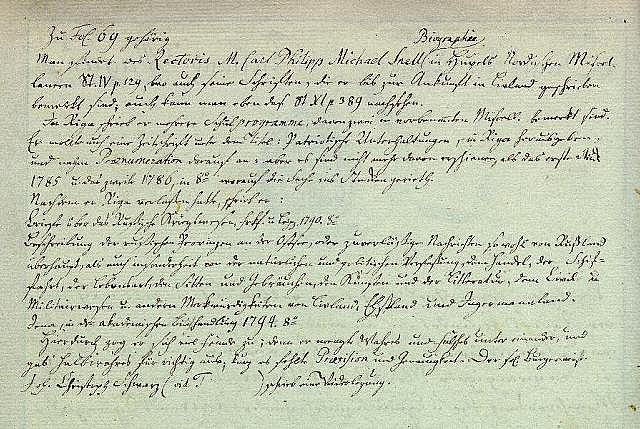 Zu Fol. 69 gehörig Biographica
Man findet des Rectoris M. Carl Philipp Michael Snell in Hupels Nordischen Miscel-
laneen St. IV p. 129, wo auch seine Schriften, die er bis zur Ankunft in Livland geschrieben
bemerkt sind; auch kann man eben das. St. XI p. 389 nachsehen.
In Riga schrieb er mehrere Schulprogramme, davon in vorbenannten Miscell. bemerkt sind.
Er wollte auch eine Zeitschrift unter dem Titel: Patriotische Unterhaltungen, in Riga herausgeben,
und nahm Pränumeration darauf an; aber es sind nicht mehr davon erschienen, als das erste Stück
1785 u. das zweite 1786, in 8º worauf die Sache ins Stecken gerieth.
Nachdem er Riga verlassen hatte, schrieb er:
Briefe über das Russische Kriegswesen, Frkf. u. Leipz. 1790. 8º
Beschreibung der russischen Provinzen an der Ostsee, oder zuverlässige Nachrichten sowohl von Russland
überhaupt, als auch insonderheit von der natürlichen und politischen Verfassung, dem Handel, der Schif-
fahrt, der Lebensart, den Sitten und Gebräuchen, den Künsten und der Litteratur, dem Civil- u.
Militairwesen u. andern Merkwürdigkeiten von Livland, Ehstland und Ingermannland.
Jena, in der akademischen Buchhandlung 1794. 8º
Hierdurch zog er sich viel Feinde zu; denn er mengte Wahres und Falsches unter einander, und
gab halbwahres für richtig aus; kurz es fehlte Präcision und Genauigkeit. Der sel. Bürgermstr.
Joh. Christoph Schwarz (vid. T ) schrieb eine Widerlegung.